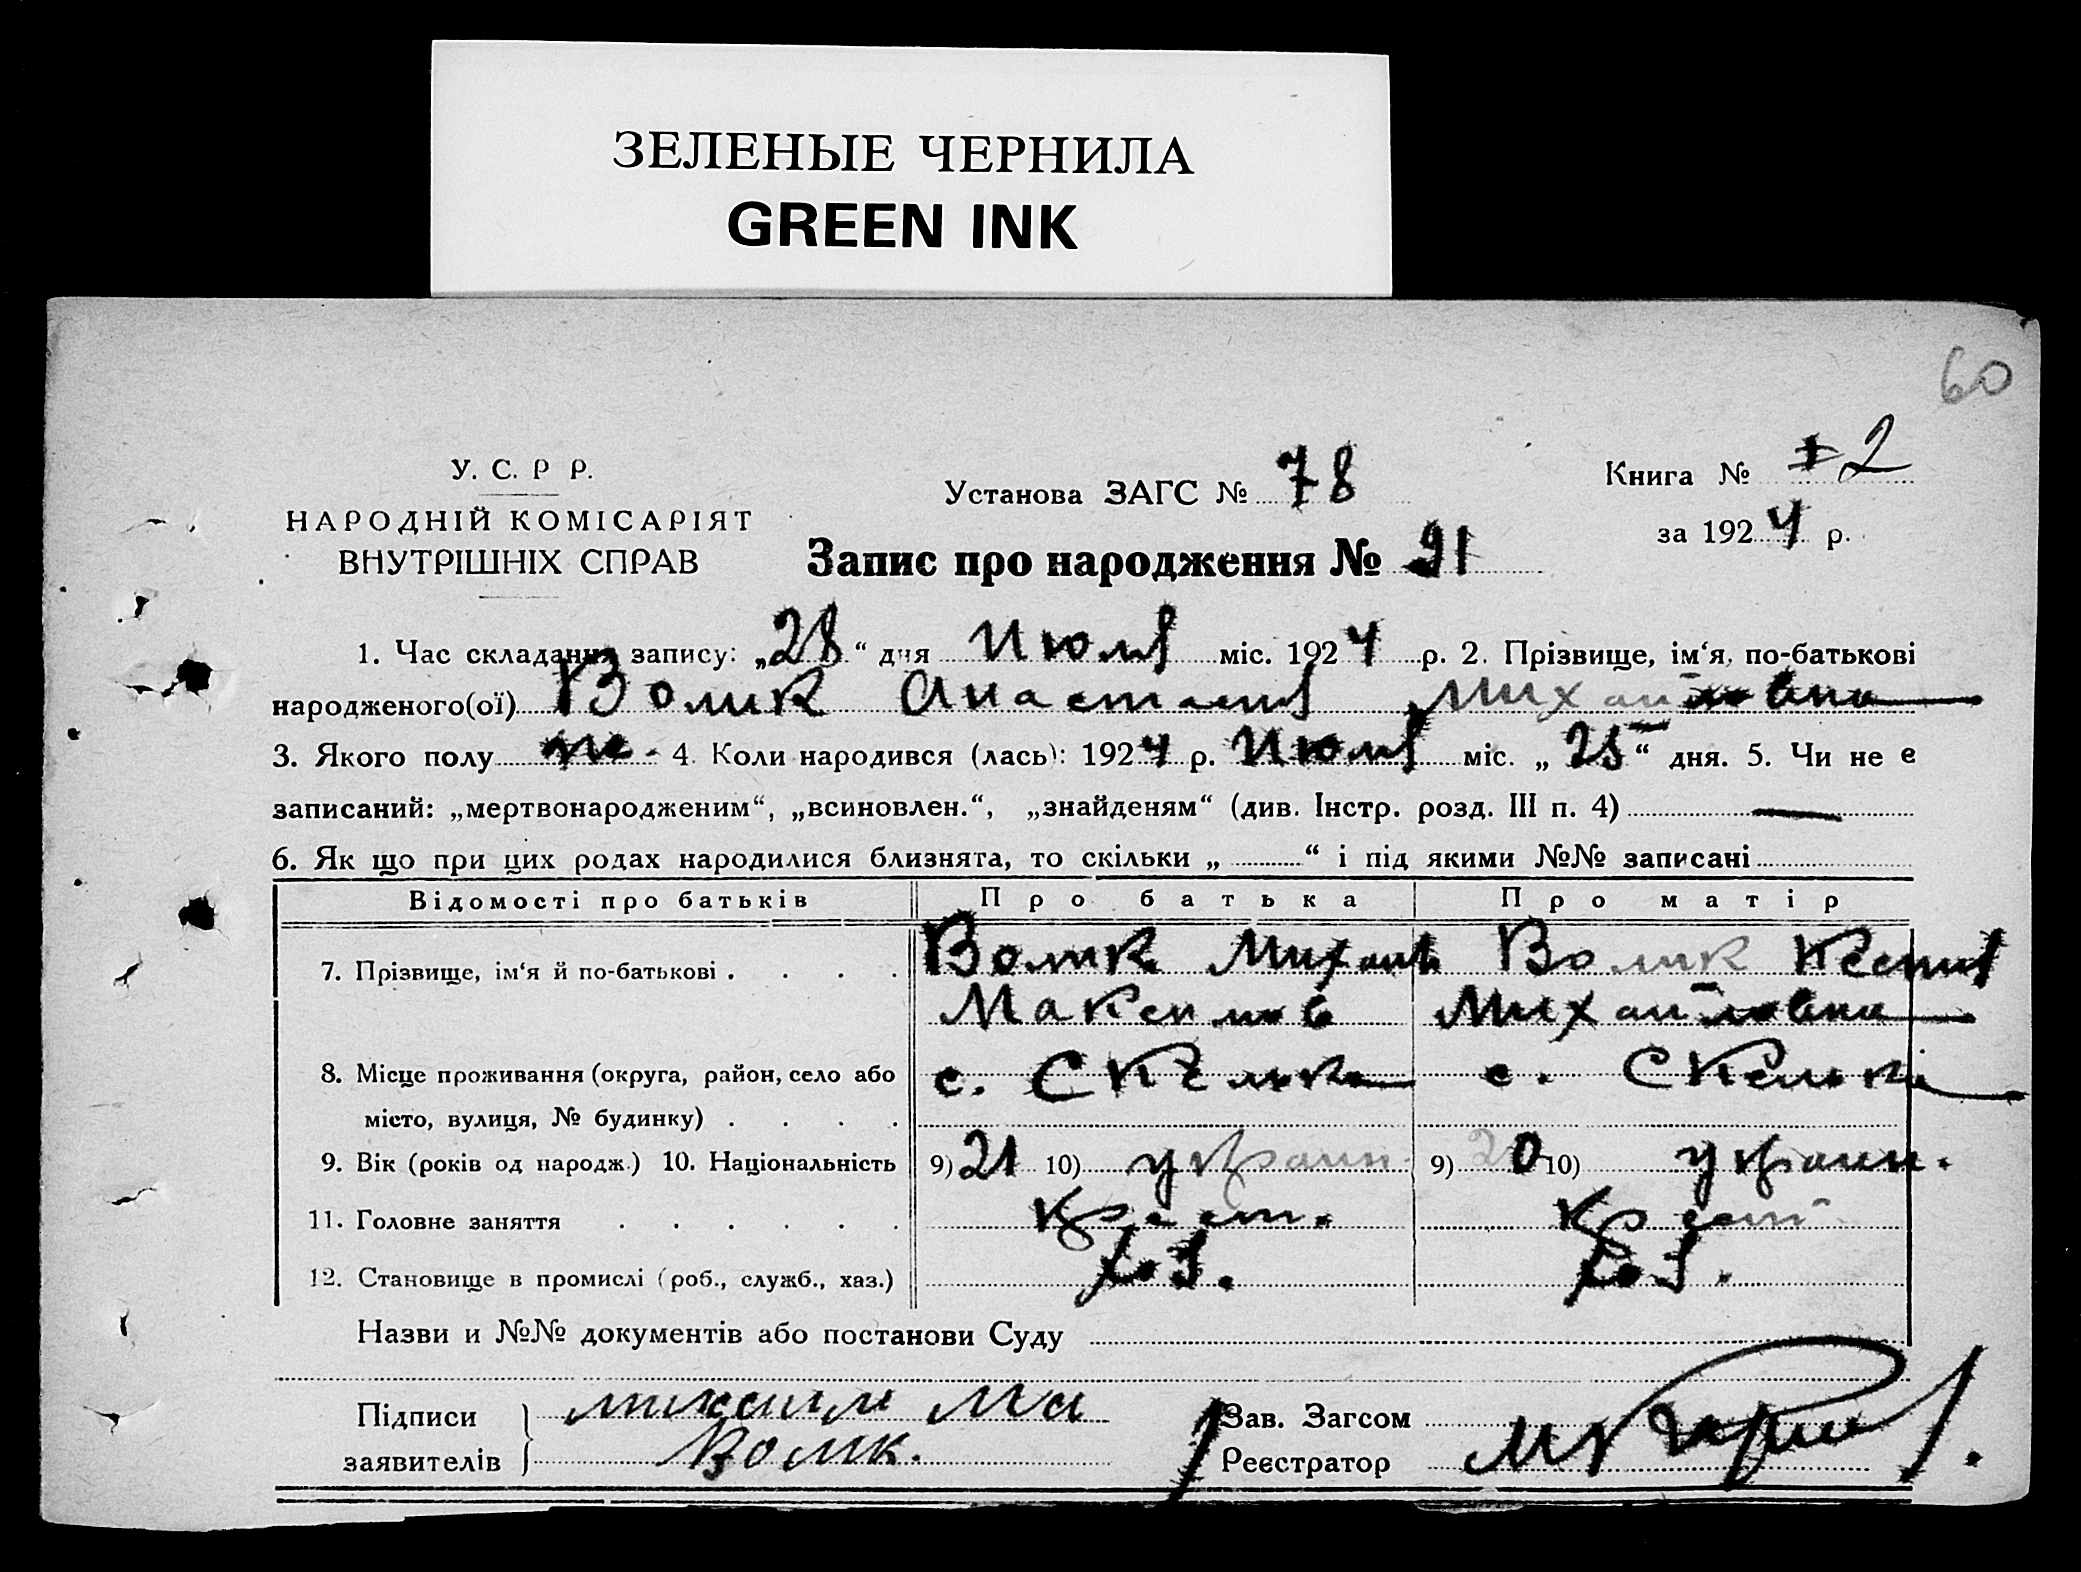 ЗЕЛЕНЫЕ ЧЕРНИЛА
GREEN INK
60
У. С. Р Р.
НАРОДНІЙ КОМІСАРІЯТ
ВНУТРІШНІХ СПРАВ
Установа ЗАГС № 78
Книга № 2
за 1924 р.
Запис про народження № 91
1. Час складання запису: „28“ дня Июля міс. 1924 р. 2. Прізвище, ім‘я, по-батькові
народженого(ої) Волик Анастасия Михайловна
3. Якого полу ж. 4. Коли народився (лась): 1924 р. Июля міс. „25“ дня. 5. Чи не є
записаний: „мертвонародженим“, „всиновлен.“, „знайденям“ (див. Інстр. розд. III п. 4) —
6. Як що при цих родах народилися близнята, то скільки „ “ і під якими №№ записані
Відомості про батьків Про батька Про матір
7. Прізвище, ім‘я й по-батькові . . . . Волик Михаил Волик Ксения
Максимов Михайловна
8. Місце проживання (округа, район, село або с. Скелька с. Скелька
місто, вулиця, № будинку) . . . .
9. Вік (років од народж.) 10. Національність 9) 21 10) украин. 9) 20 10) украин.
11. Головне заняття . . . . . . Крест. Крест.
12. Становище в промислі (роб., служб., хаз.) Хоз. Хоз.
Назви и №№ документів або постанови Суду
Підписи михаил Ма Зав. Загсом
заявителів Волик. Реєстратор